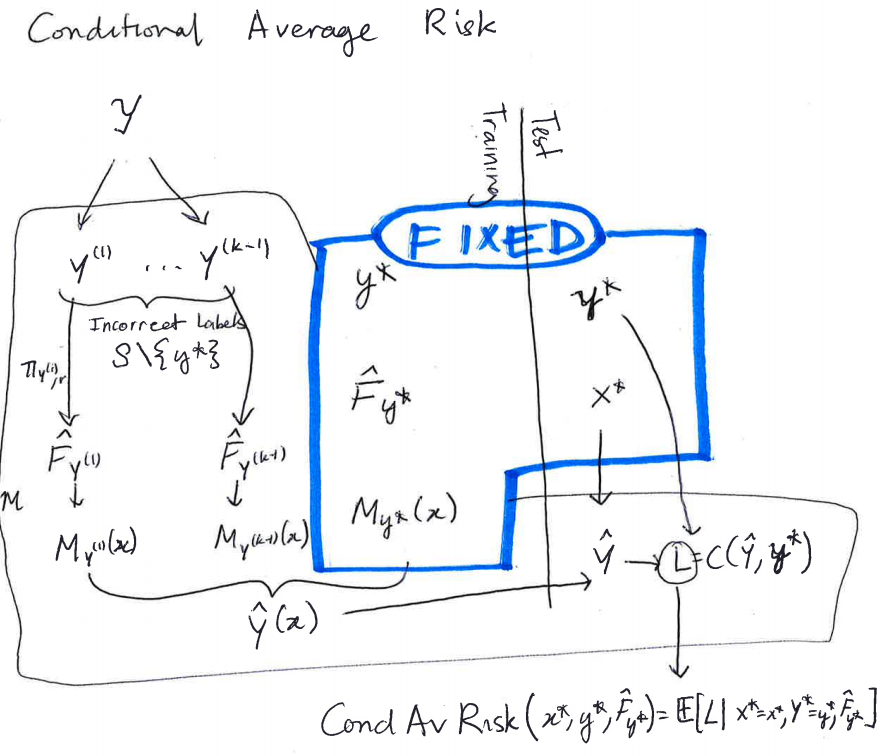 Conditional Average Risk
Y
Training
Test
FIXED
Y⁽¹⁾ ... Y⁽ᵏ⁻¹⁾
y*
y*
Incorrect Labels
S\{y*}
F̂_y*
x*
F̂_Y⁽¹⁾
F̂_Y⁽ᵏ⁻¹⁾
M_Y⁽¹⁾(x)
M_Y⁽ᵏ⁻¹⁾(x)
M_y*(x)
Ŷ
L = C(Ŷ, y*)
Ŷ(x)
Cond Av Risk (x*, y*, F̂_y*) = 𝔼[L| X*=x*, Y*=y*, F̂_y*]